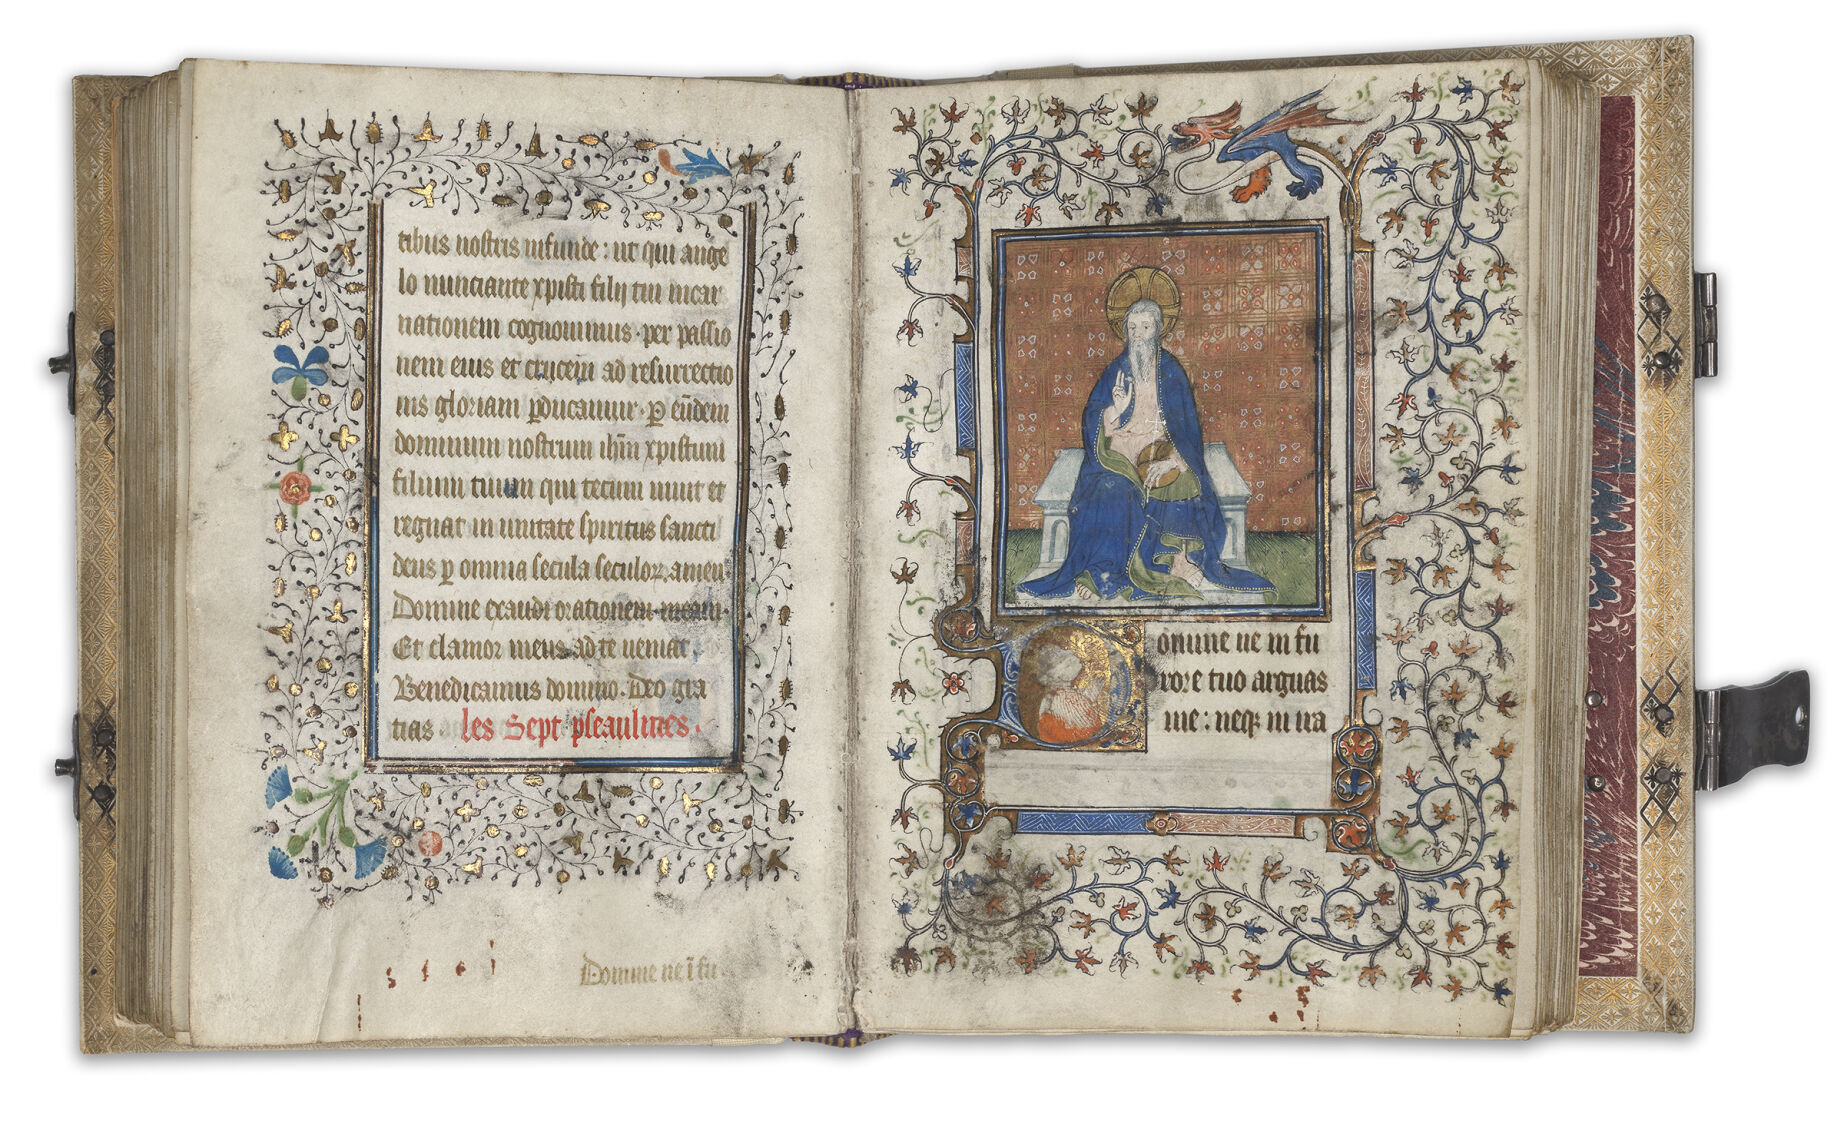 tibus nostris infunde : ut qui ange
lo nunciante xpisti filij tui incar
nationem cognouimus · per passio
nem eius et crucem ad resurrectio
nis gloriam p̱ducamur · p̱ eūdem
dominum nostrum ihm̄ xpistum
filium tuum qui tecum uiuit et
regnat in unitate spiritus sancti
deus p̱ omnia secula seculoꝝ. amen
Domine exaudi orationem meam.
Et clamor meus ad te ueniat.
Benedicamus domino. Deo gra
tias les Sept pseaulmes.
Domine ne ī fu
Domine ne in fu
rore tuo arguas
me : neqꝫ in ira